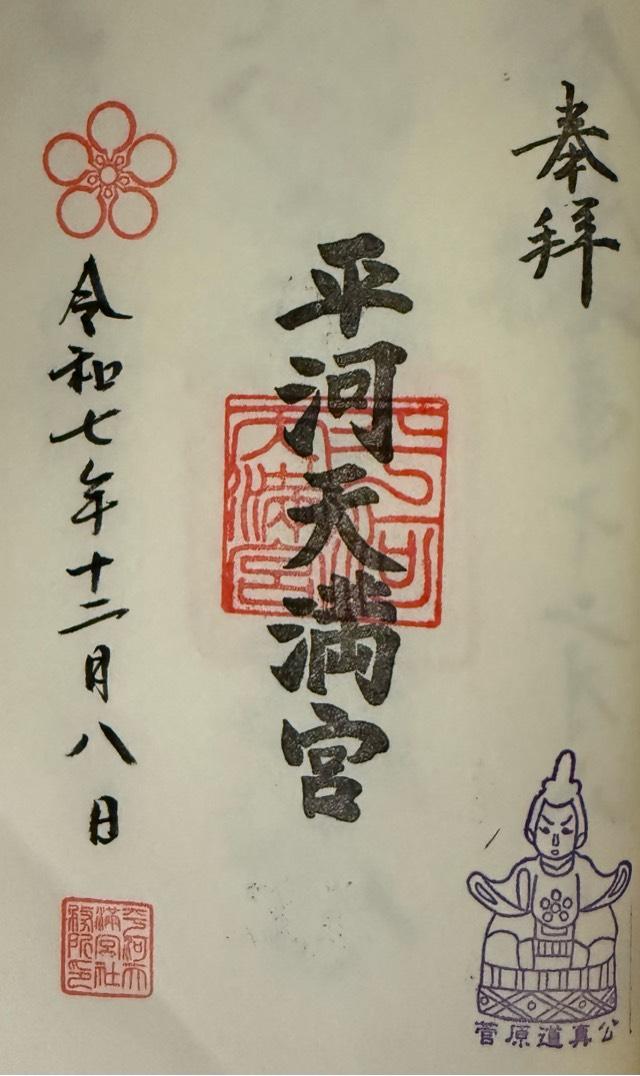 奉拝
平河天満宮
平河天満宮
令和七年十二月八日
平河天満宮社務所印
菅原道真公